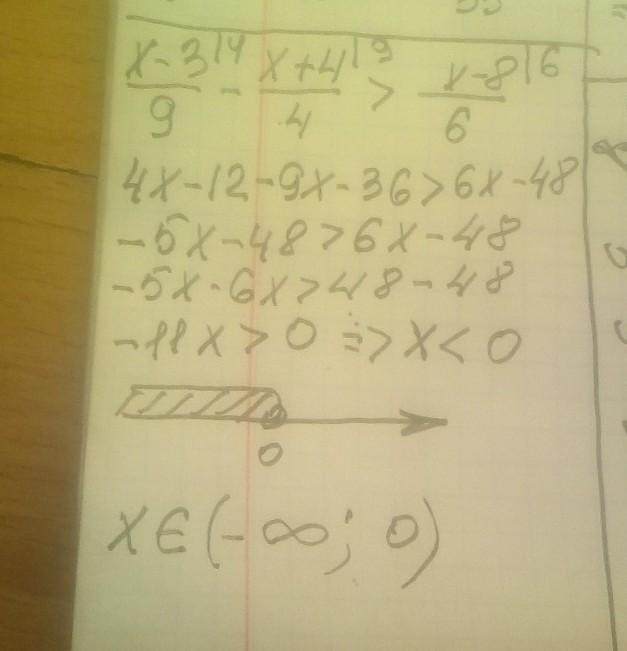 x-3|4 / 9 - x+4|9 / 4 > x-8|6 / 6
4x-12-9x-36>6x-48
-5x-48>6x-48
-5x-6x>48-48
-11x>0 => x<0
0
x∈(-∞; 0)